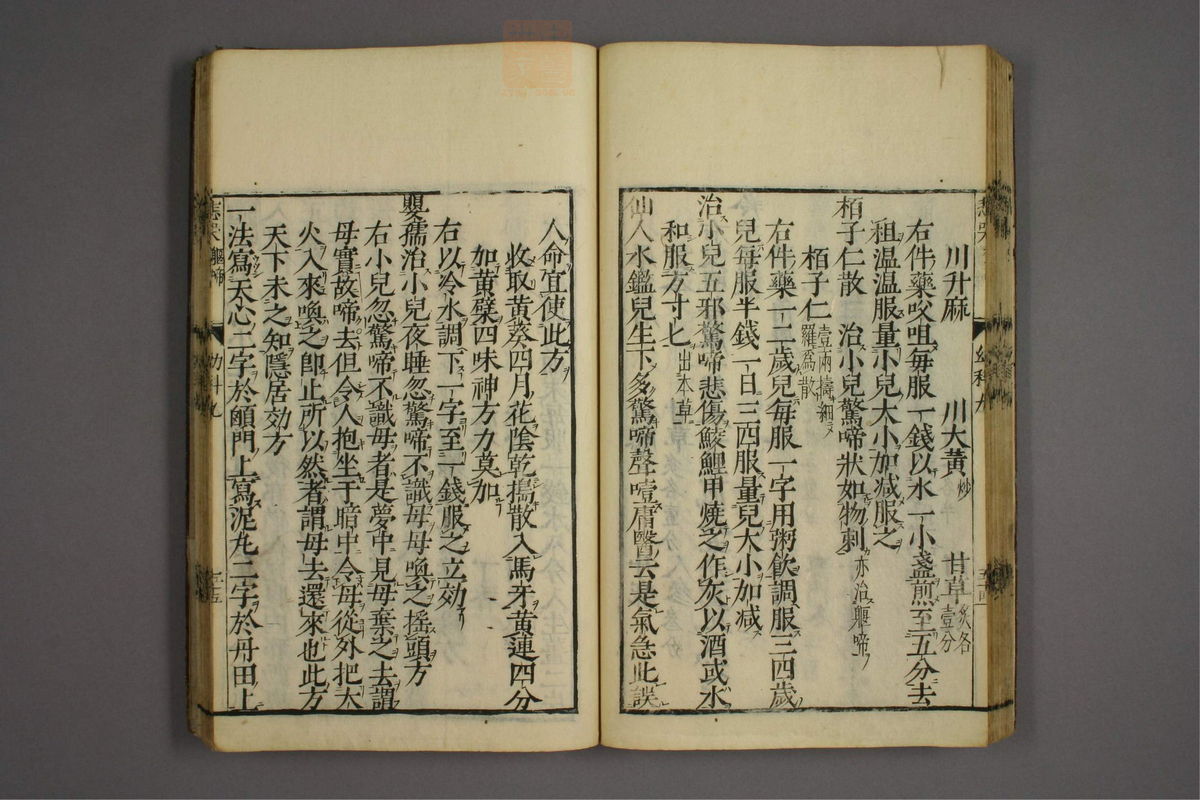 川升麻 川大黄炒 甘草炙各壹分
右件藥㕮咀毎服一錢以水一小盞煎至五分去
柤温温服量小兒大小加减服之
栢子仁散 治小兒驚啼狀如物刺亦治軀啼
栢子仁壹兩擣細羅爲散
右件藥一二歲兒毎服一字用粥飲調服三四歲
兒毎服半錢一日三四服量兒大小加减
治小兒五邪驚啼悲傷鮫鯉甲燒之作灰以酒或水
和服方寸匕出本草
仙人水鑑兒生下多驚啼聲噎庸醫云是氣急此誤
人命宜使此方
收取黄葵四月花陰乾搗散入馬牙黄連四分
如黄檗四味神方力莫加
右以冷水調下一字至一錢服之立効
嬰孺治小兒夜睡忽驚啼不識母母喚之搖頭方
右小兒忽驚啼不識母者是夢中見母棄之去謂
母實故啼去但令人抱坐于暗中令母從外把大
火入來喚之卽止所以然者謂母去還來也此方
天下未之知隱居効方
一法寫天心二字於顖門上寫泥丸二字於丹田上
幼科九